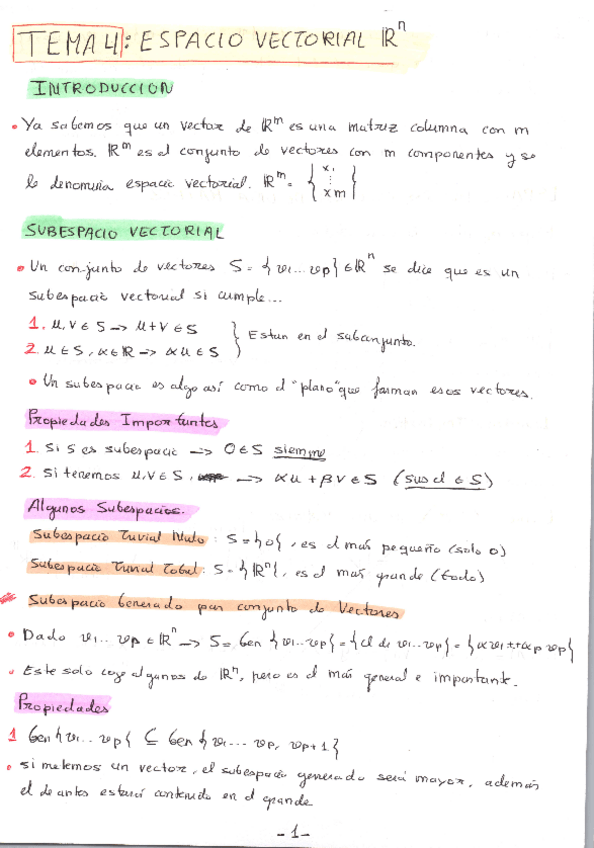 TEMA 4: ESPACIO VECTORIAL ℝⁿ
INTRODUCCION
• Ya sabemos que un vector de ℝᵐ es una matriz columna con m
elementos. ℝᵐ es el conjunto de vectores con m componentes y se
le denomina espacio vectorial. ℝᵐ = { x₁ ⋮ xm }
SUBESPACIO VECTORIAL
• Un conjunto de vectores S = {v1... vp} ∈ ℝⁿ se dice que es un
subespacio vectorial si cumple...
1. u, v ∈ S -> u+v ∈ S
2. u ∈ S, α ∈ ℝ -> αu ∈ S } Estan en el subconjunto.
• Un subespacio es algo así como el "plano" que forman esos vectores.
Propiedades Importantes
1. Si S es subespacio -> 0 ∈ S siempre
2. Si tenemos u, v ∈ S, -> αu + βv ∈ S (sus cl ∈ S)
Algunos Subespacios.
Subespacio Trivial Nulo: S = {0}, es el más pequeño (solo 0)
Subespacio Trivial Total: S = {ℝⁿ}, es el más grande (todo)
Subespacio Generado por conjunto de Vectores
• Dado v1... vp ∈ ℝⁿ -> S = Gen {v1...vp} = {cl de v1...vp} = {αv1+..+αp vp}
• Este solo coge algunos de ℝⁿ, pero es el más general e importante.
Propiedades
1 Gen{v1... vp} ⊆ Gen {v1... vp, vp+1}
• si metemos un vector, el subespacio generado será mayor, además
el de antes estará contenido en el grande
-1-